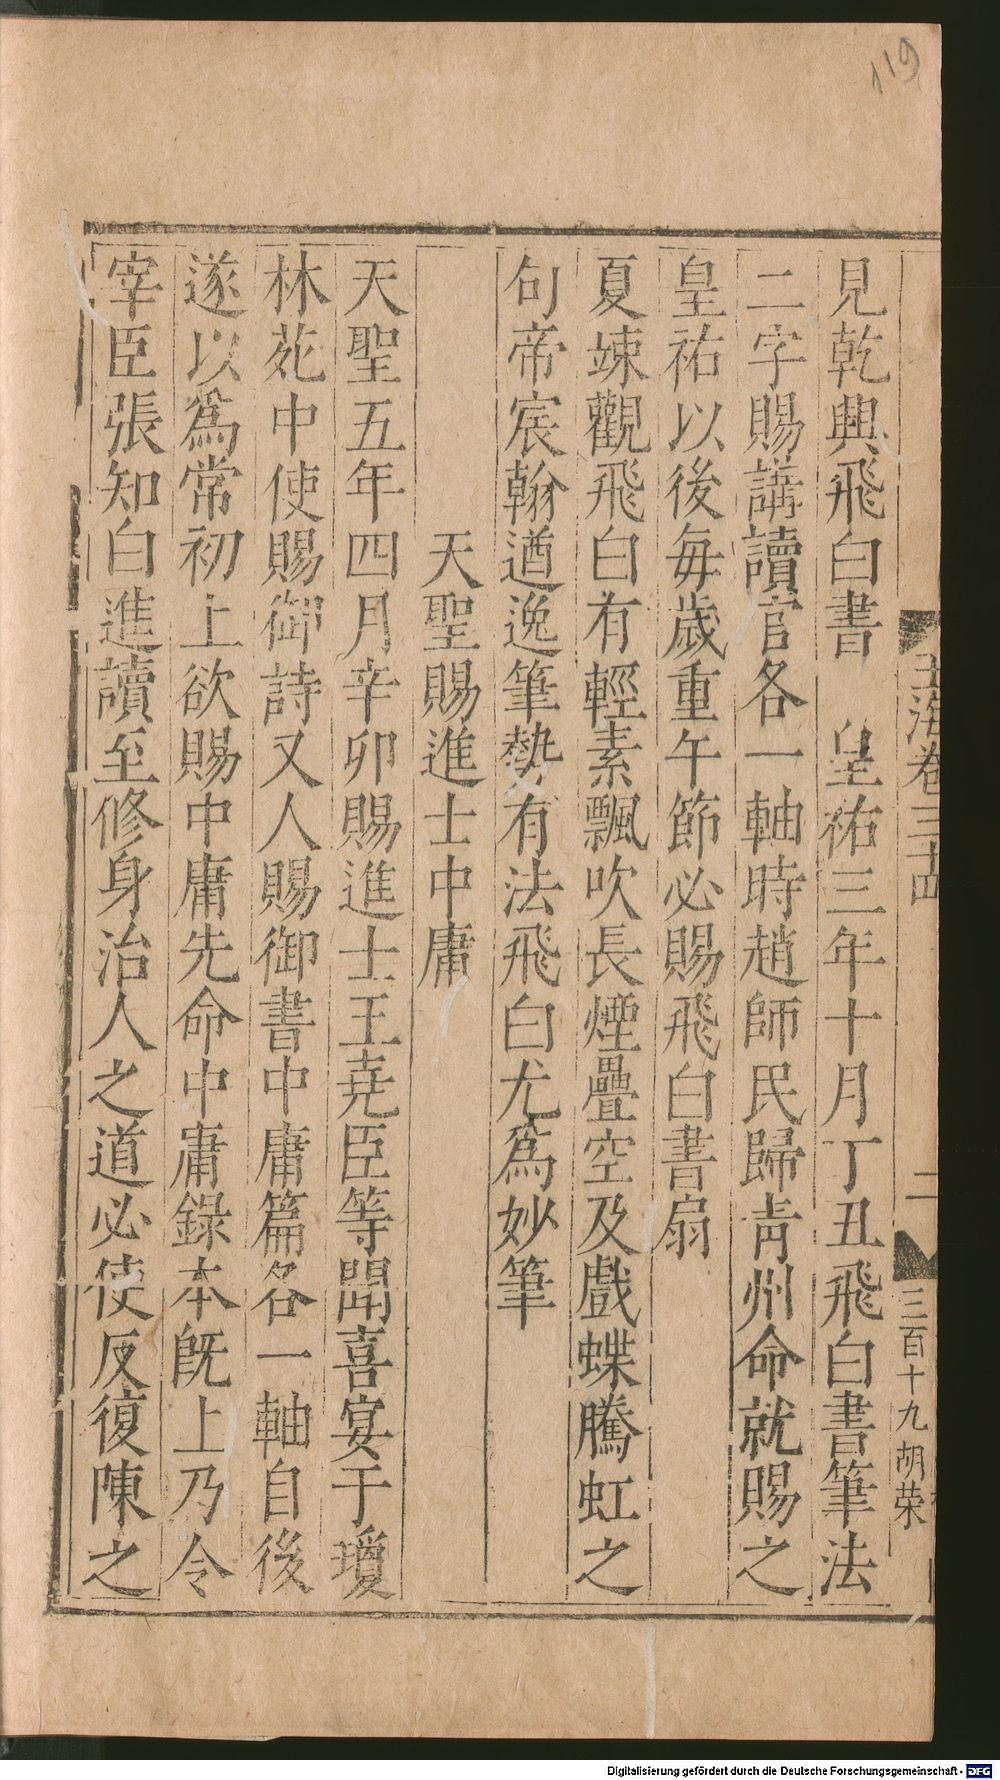 119
玉海卷三十四
二
三百十九 胡荣
見乾興飛白書 皇祐三年十月丁丑飛白書筆法
二字賜講讀官各一軸時趙師民歸青州命就賜之
皇祐以後每歲重午節必賜飛白書扇
夏竦觀飛白有輕素飄吹長煙疊空及戲蝶騰虹之
句帝宸翰遒逸筆勢有法飛白尤爲妙筆
天聖賜進士中庸
天聖五年四月辛卯賜進士王堯臣等聞喜宴于瓊
林苑中使賜御詩又人賜御書中庸篇各一軸自後
遂以爲常初上欲賜中庸先命中庸錄本旣上乃令
宰臣張知白進讀至修身治人之道必使反復陳之
Digitalisierung gefördert durch die Deutsche Forschungsgemeinschaft - DFG